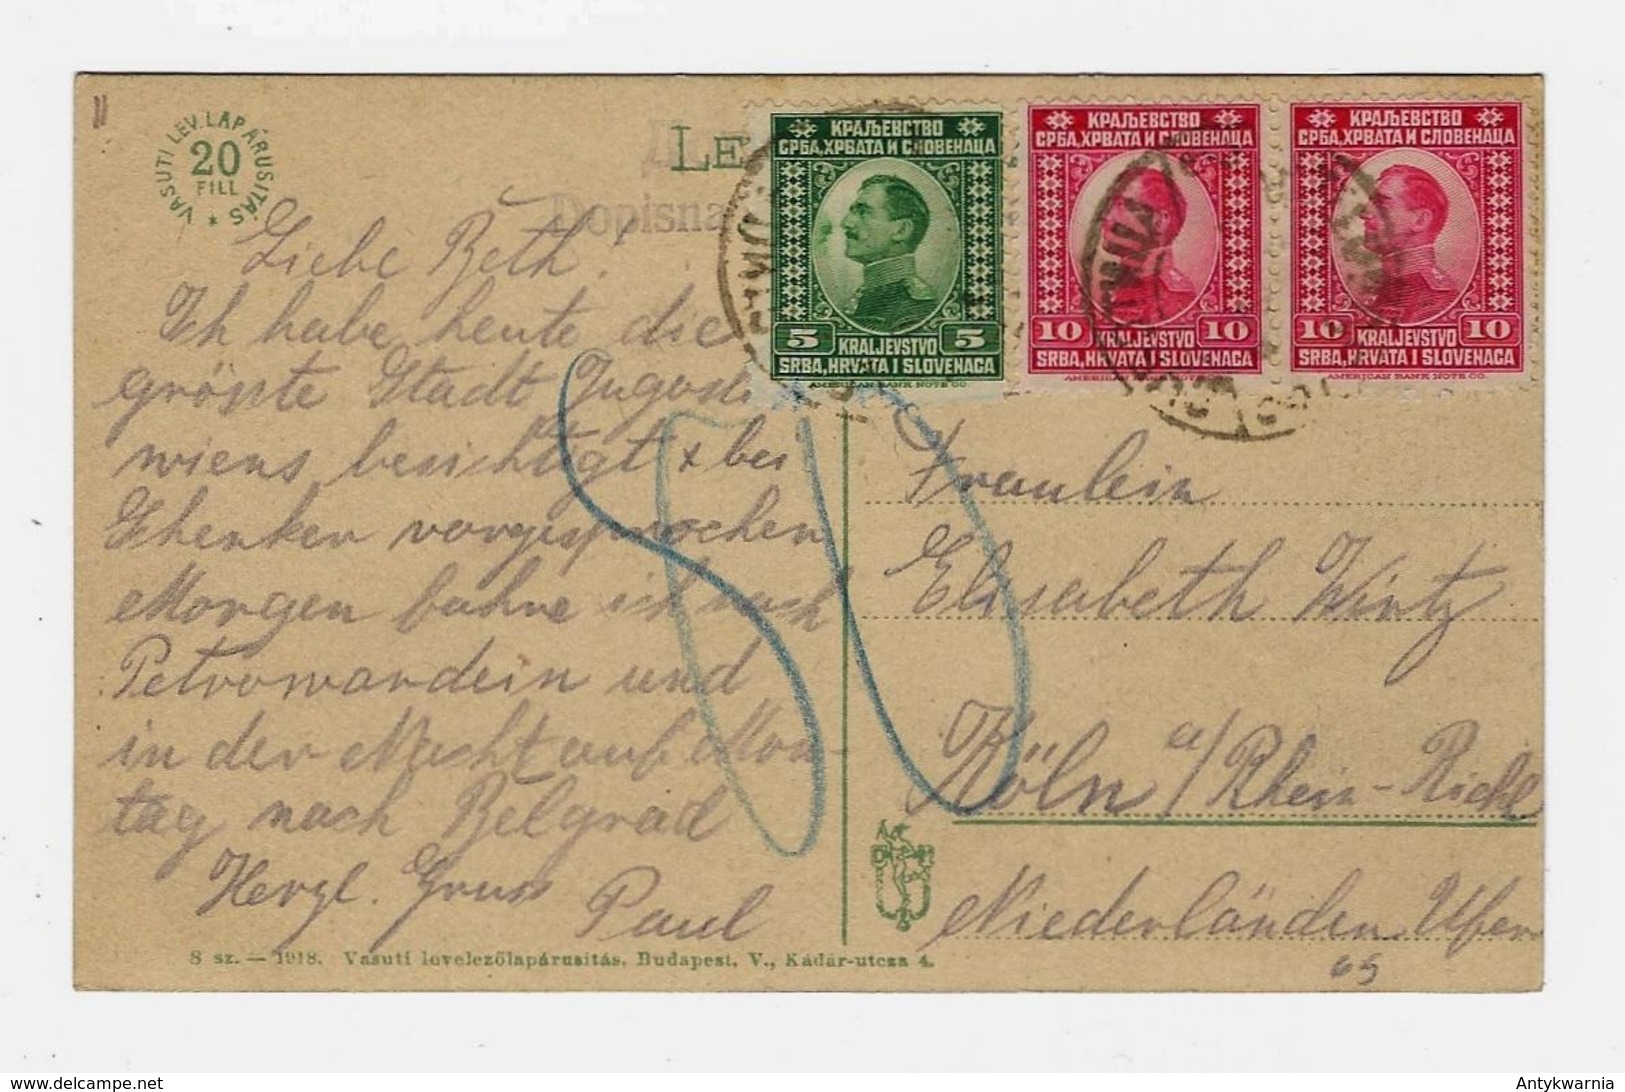 VASUTI LEV.LAPÁRUSITÁS *
20
FILL
LE
Dopisna
КРАЉЕВСТВО
СРБА, ХРВАТА И СЛОВЕНАЦА
5 5
KRALJEVSTVO
SRBA, HRVATA I SLOVENACA
AMERICAN BANK NOTE CO.
КРАЉЕВСТВО
СРБА, ХРВАТА И СЛОВЕНАЦА
10 10
KRALJEVSTVO
SRBA, HRVATA I SLOVENACA
AMERICAN BANK NOTE CO.
КРАЉЕВСТВО
СРБА, ХРВАТА И СЛОВЕНАЦА
10 10
KRALJEVSTVO
SRBA, HRVATA I SLOVENACA
AMERICAN BANK NOTE CO.
Liebe Beth,
Ich habe heute die
grösste Stadt Jugosla
wiens besichtigt + bei
vorgesprochen
Morgen fahre ich nach
Petrowardein und
in der Nacht auf Mon-
tag nach Belgrad
Herzl. Gruss Paul
80
Fraulein
Elisabeth Wirtz
Köln a/Rhein-Riehl
Niederländer Ufer
65
8 sz. — 1918. Vasuti levelezőlapárusitás, Budapest, V., Kádár-utcza 4.
Antykwarnia